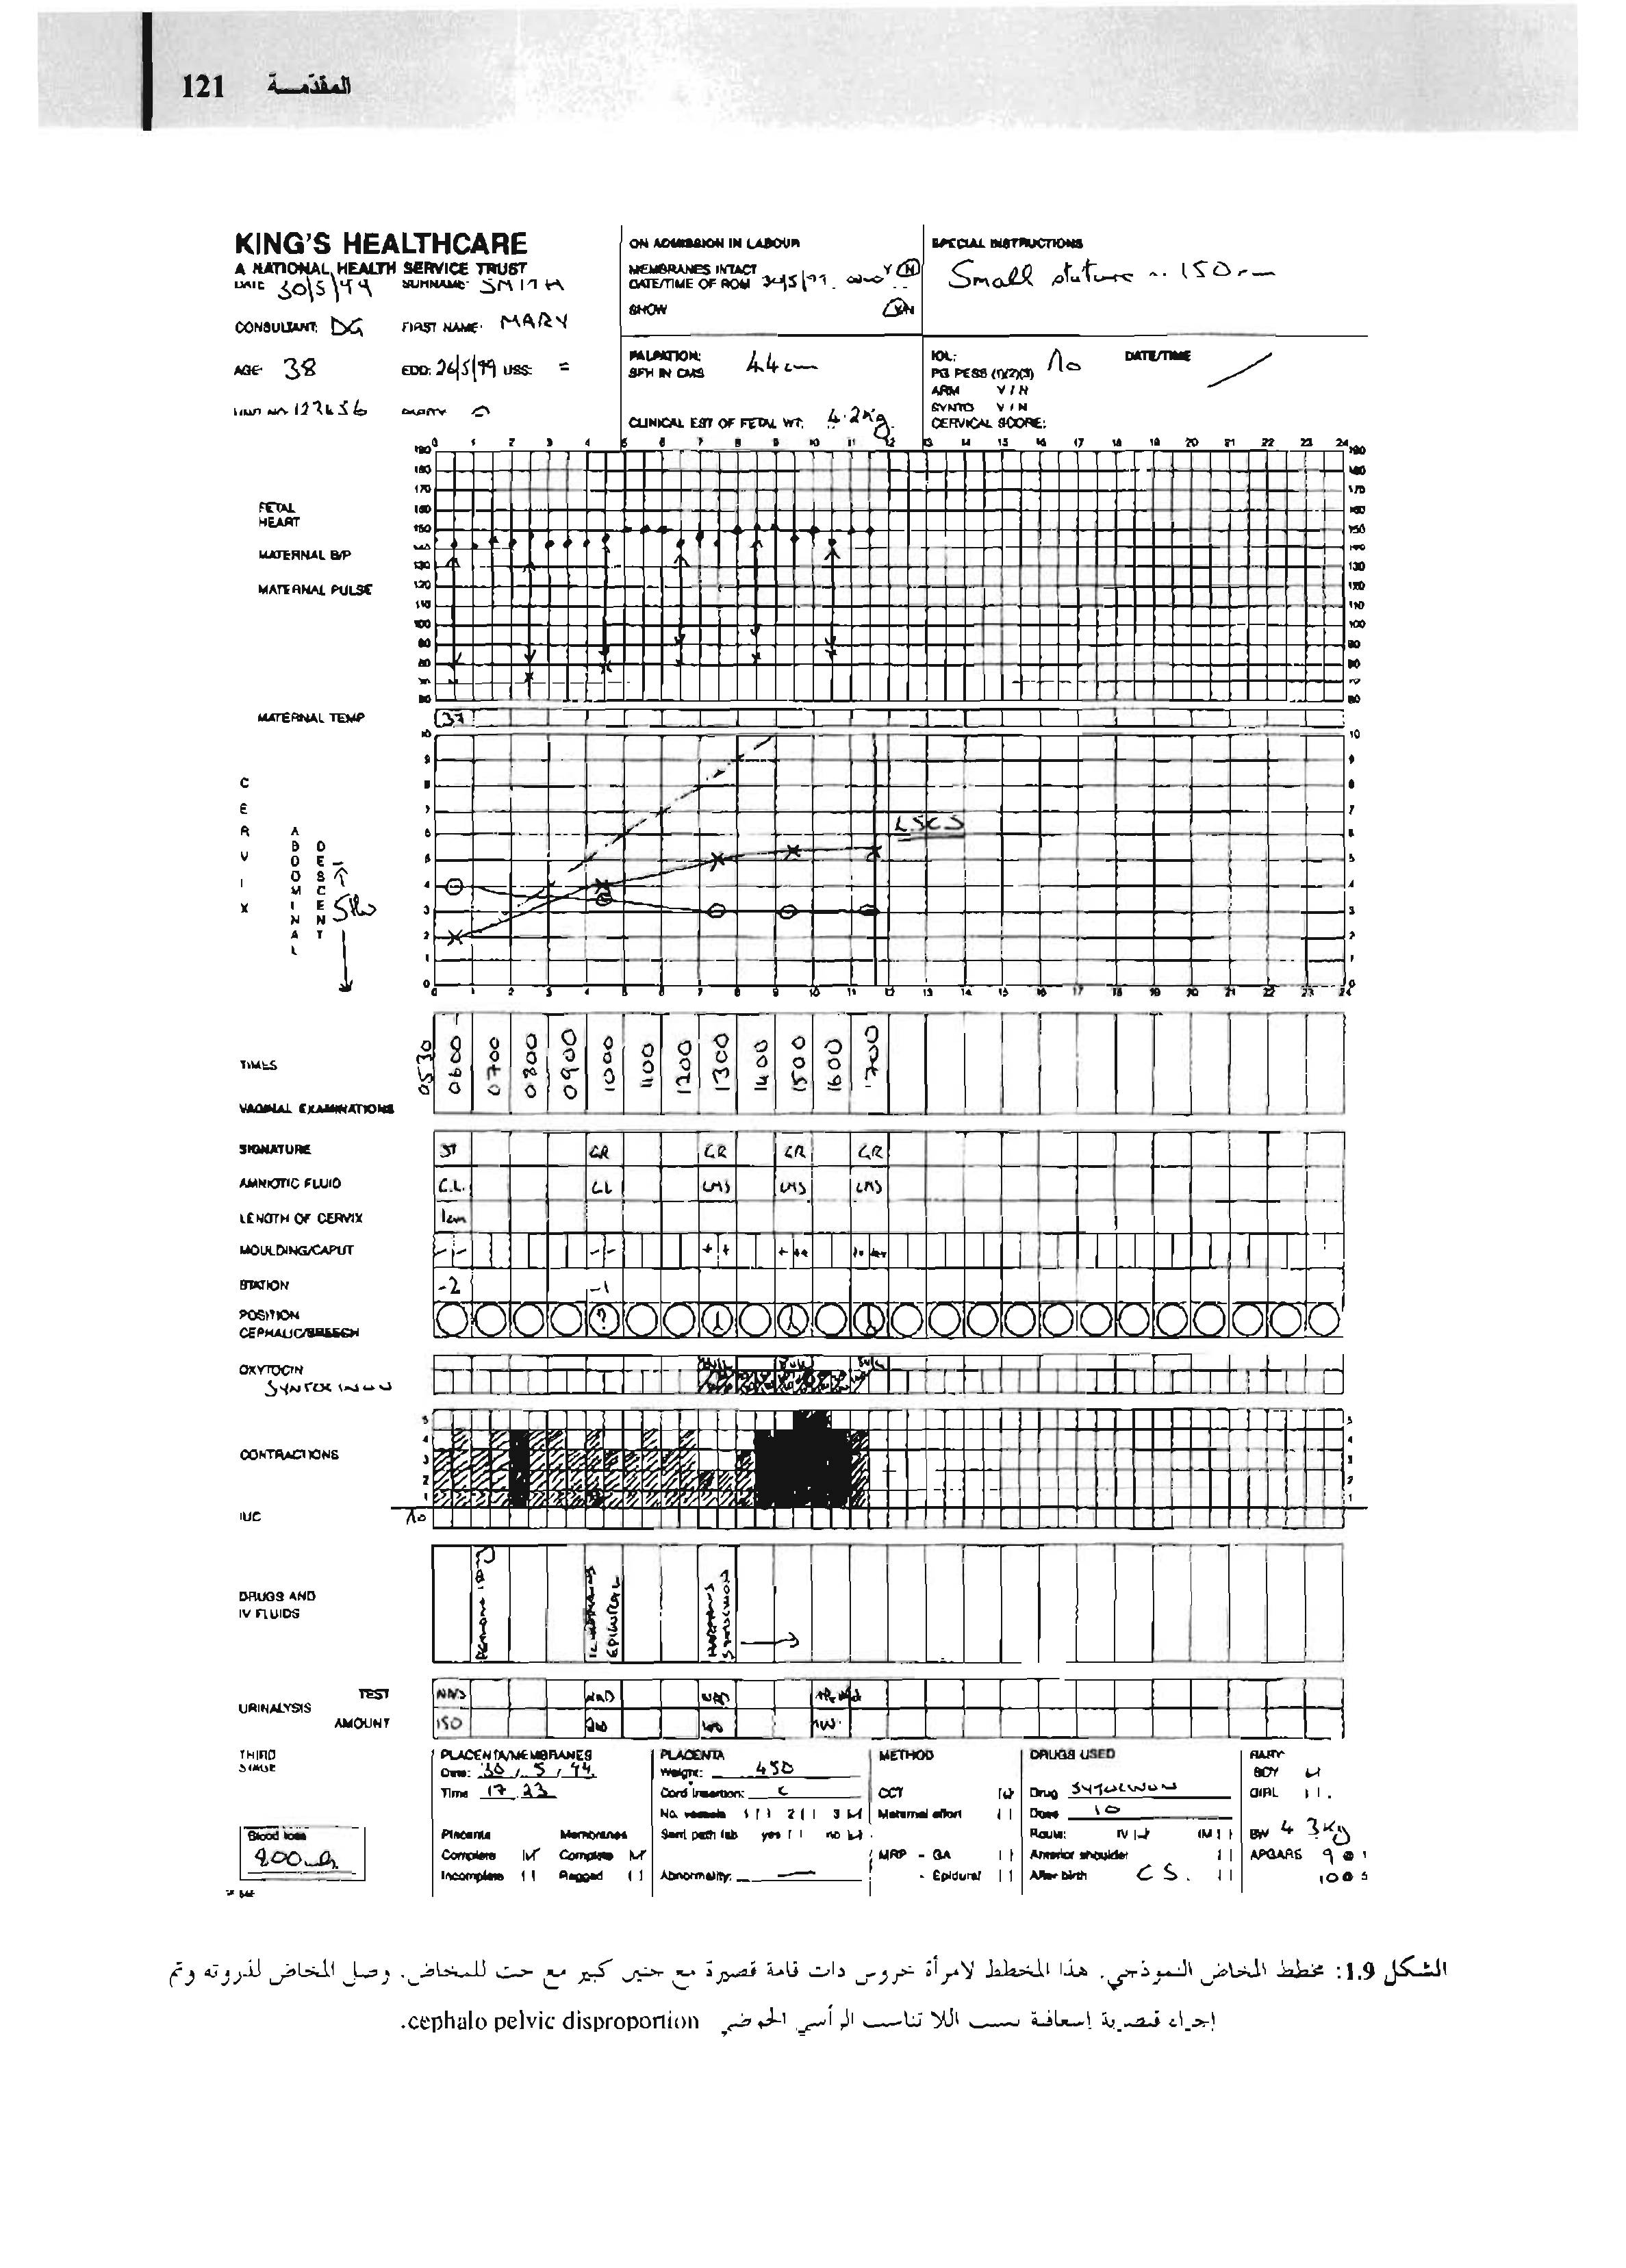 121 المقدّمـــة
KING'S HEALTHCARE
A NATIONAL HEALTH SERVICE TRUST
DATE 30/5/99 SURNAME: SMITH
CONSULTANT: DG FIRST NAME: MARY
AGE: 38 EDD: 26/5/99 USS: =
UNIT NO 122656 PARITY 0
ON ADMISSION IN LABOUR
MEMBRANES INTACT Y N
DATE/TIME OF ROM 30/5/99
SHOW Y/N
SPECIAL INSTRUCTIONS
Small stature 150cm
PALPATION:
SFH IN CMS 44cm
CLINICAL EST OF FETAL WT: 4.2Kg.
IOL: No DATE/TIME
PG PESS (1)(2)(3)
ARM Y/N
SYNTO Y/N
CERVICAL SCORE:
0 1 2 3 4 5 6 7 8 9 10 11 12 13 14 15 16 17 18 19 20 21 22 23 24
FETAL
HEART
MATERNAL B/P
MATERNAL PULSE
190 180 170 160 150 140 130 120 110 100 90 80 70 60
MATERNAL TEMP 37
CERVIX
ABDOMINAL
DESCENT
10 9 8 7 6 5 4 3 2 1 0
LSCS
0 1 2 3 4 5 6 7 8 9 10 11 12 13 14 15 16 17 18 19 20 21 22 23 24
TIMES 0530 0600 0700 0800 0900 1000 1100 1200 1300 1400 1500 1600 1700
VAGINAL EXAMINATIONS
SIGNATURE ST GR GR GR GR
AMNIOTIC FLUID C.L. CL LMS LMS LMS
LENGTH OF CERVIX 1cm
MOULDING/CAPUT - - - - + + + ++
STATION -2 -1
POSITION ?
CEPHALIC/BREECH
OXYTOCIN
SYNTOCINON
CONTRACTIONS 5 4 3 2 1
IUC No
DRUGS AND
IV FLUIDS
EPIDURAL
HARTMANNS
SYNTOCINON
URINALYSIS TEST NAD NAD NAD
AMOUNT 150
THIRD
STAGE
PLACENTA/MEMBRANES
Date: 30 / 5 / 99.
Time 17.23
Placenta Membranes
Complete Complete
Incomplete Ragged
PLACENTA
Weight: 450
Cord Insertion: C
No. vessels 1 2 3
Sent path lab yes no
Abnormality: —
METHOD
CCT
Maternal effort
MRP - GA
- Epidural
DRUGS USED
Drug SYTOCINON
Dose 10
Route: IV IM
Anterior shoulder
After birth C S.
BABY
BOY
GIRL
BW 4.3Kg
APGARS 9 @ 1
10 @ 5
Blood loss
800mls
الشكل 1.9: مخطط المخاض النموذجي. هذا المخطط لامرأة خروس ذات قامة قصيرة مع جنين كبير مع حث للمخاض. وصل المخاض لذروته وتم
إجراء قيصرية إسعافية بسبب اللا تناسب الرأسي الحوضي cephalo pelvic disproportion.